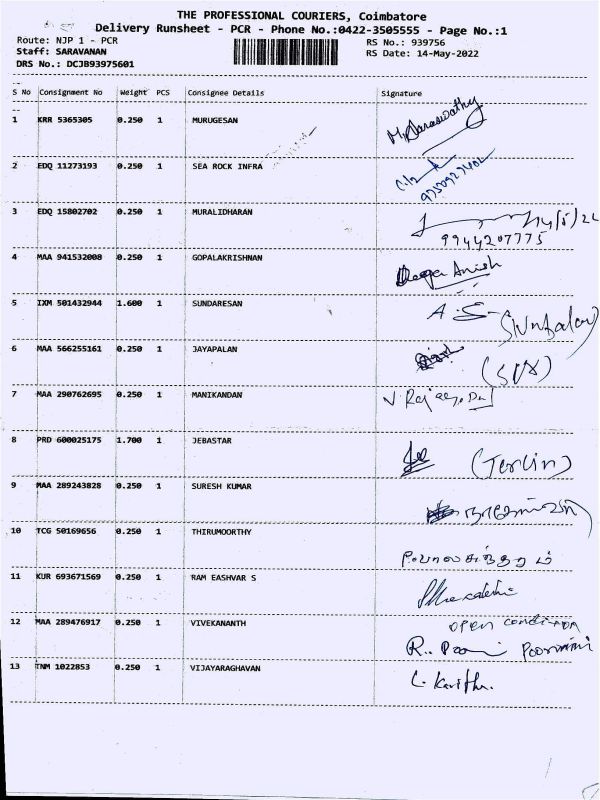 THE PROFESSIONAL COURIERS, Coimbatore
Delivery Runsheet - PCR - Phone No.:0422-3505555 - Page No.:1
Route: NJP 1 - PCR RS No.: 939756
Staff: SARAVANAN RS Date: 14-May-2022
DRS No.: DCJB93975601
S No Consignment No Weight PCS Consignee Details Signature
1 KRR 5365305 0.250 1 MURUGESAN M. Saraswathy
2 EDQ 11273193 0.250 1 SEA ROCK INFRA
3 EDQ 15802702 0.250 1 MURALIDHARAN 14/5/22
9944207775
4 MAA 941532008 0.250 1 GOPALAKRISHNAN Anish
5 IXM 501432944 1.600 1 SUNDARESAN A.S-
6 MAA 566255161 0.250 1 JAYAPALAN
7 MAA 290762695 0.250 1 MANIKANDAN
8 PRD 600025175 1.700 1 JEBASTAR (Jerlin)
9 MAA 289243828 0.250 1 SURESH KUMAR
10 TCG 50169656 0.250 1 THIRUMOORTHY
11 KUR 693671569 0.250 1 RAM EASHVAR S
12 MAA 289476917 0.250 1 VIVEKANANTH open condition
R. Poornimi
13 TNM 1022853 0.250 1 VIJAYARAGHAVAN L. Kavitha.